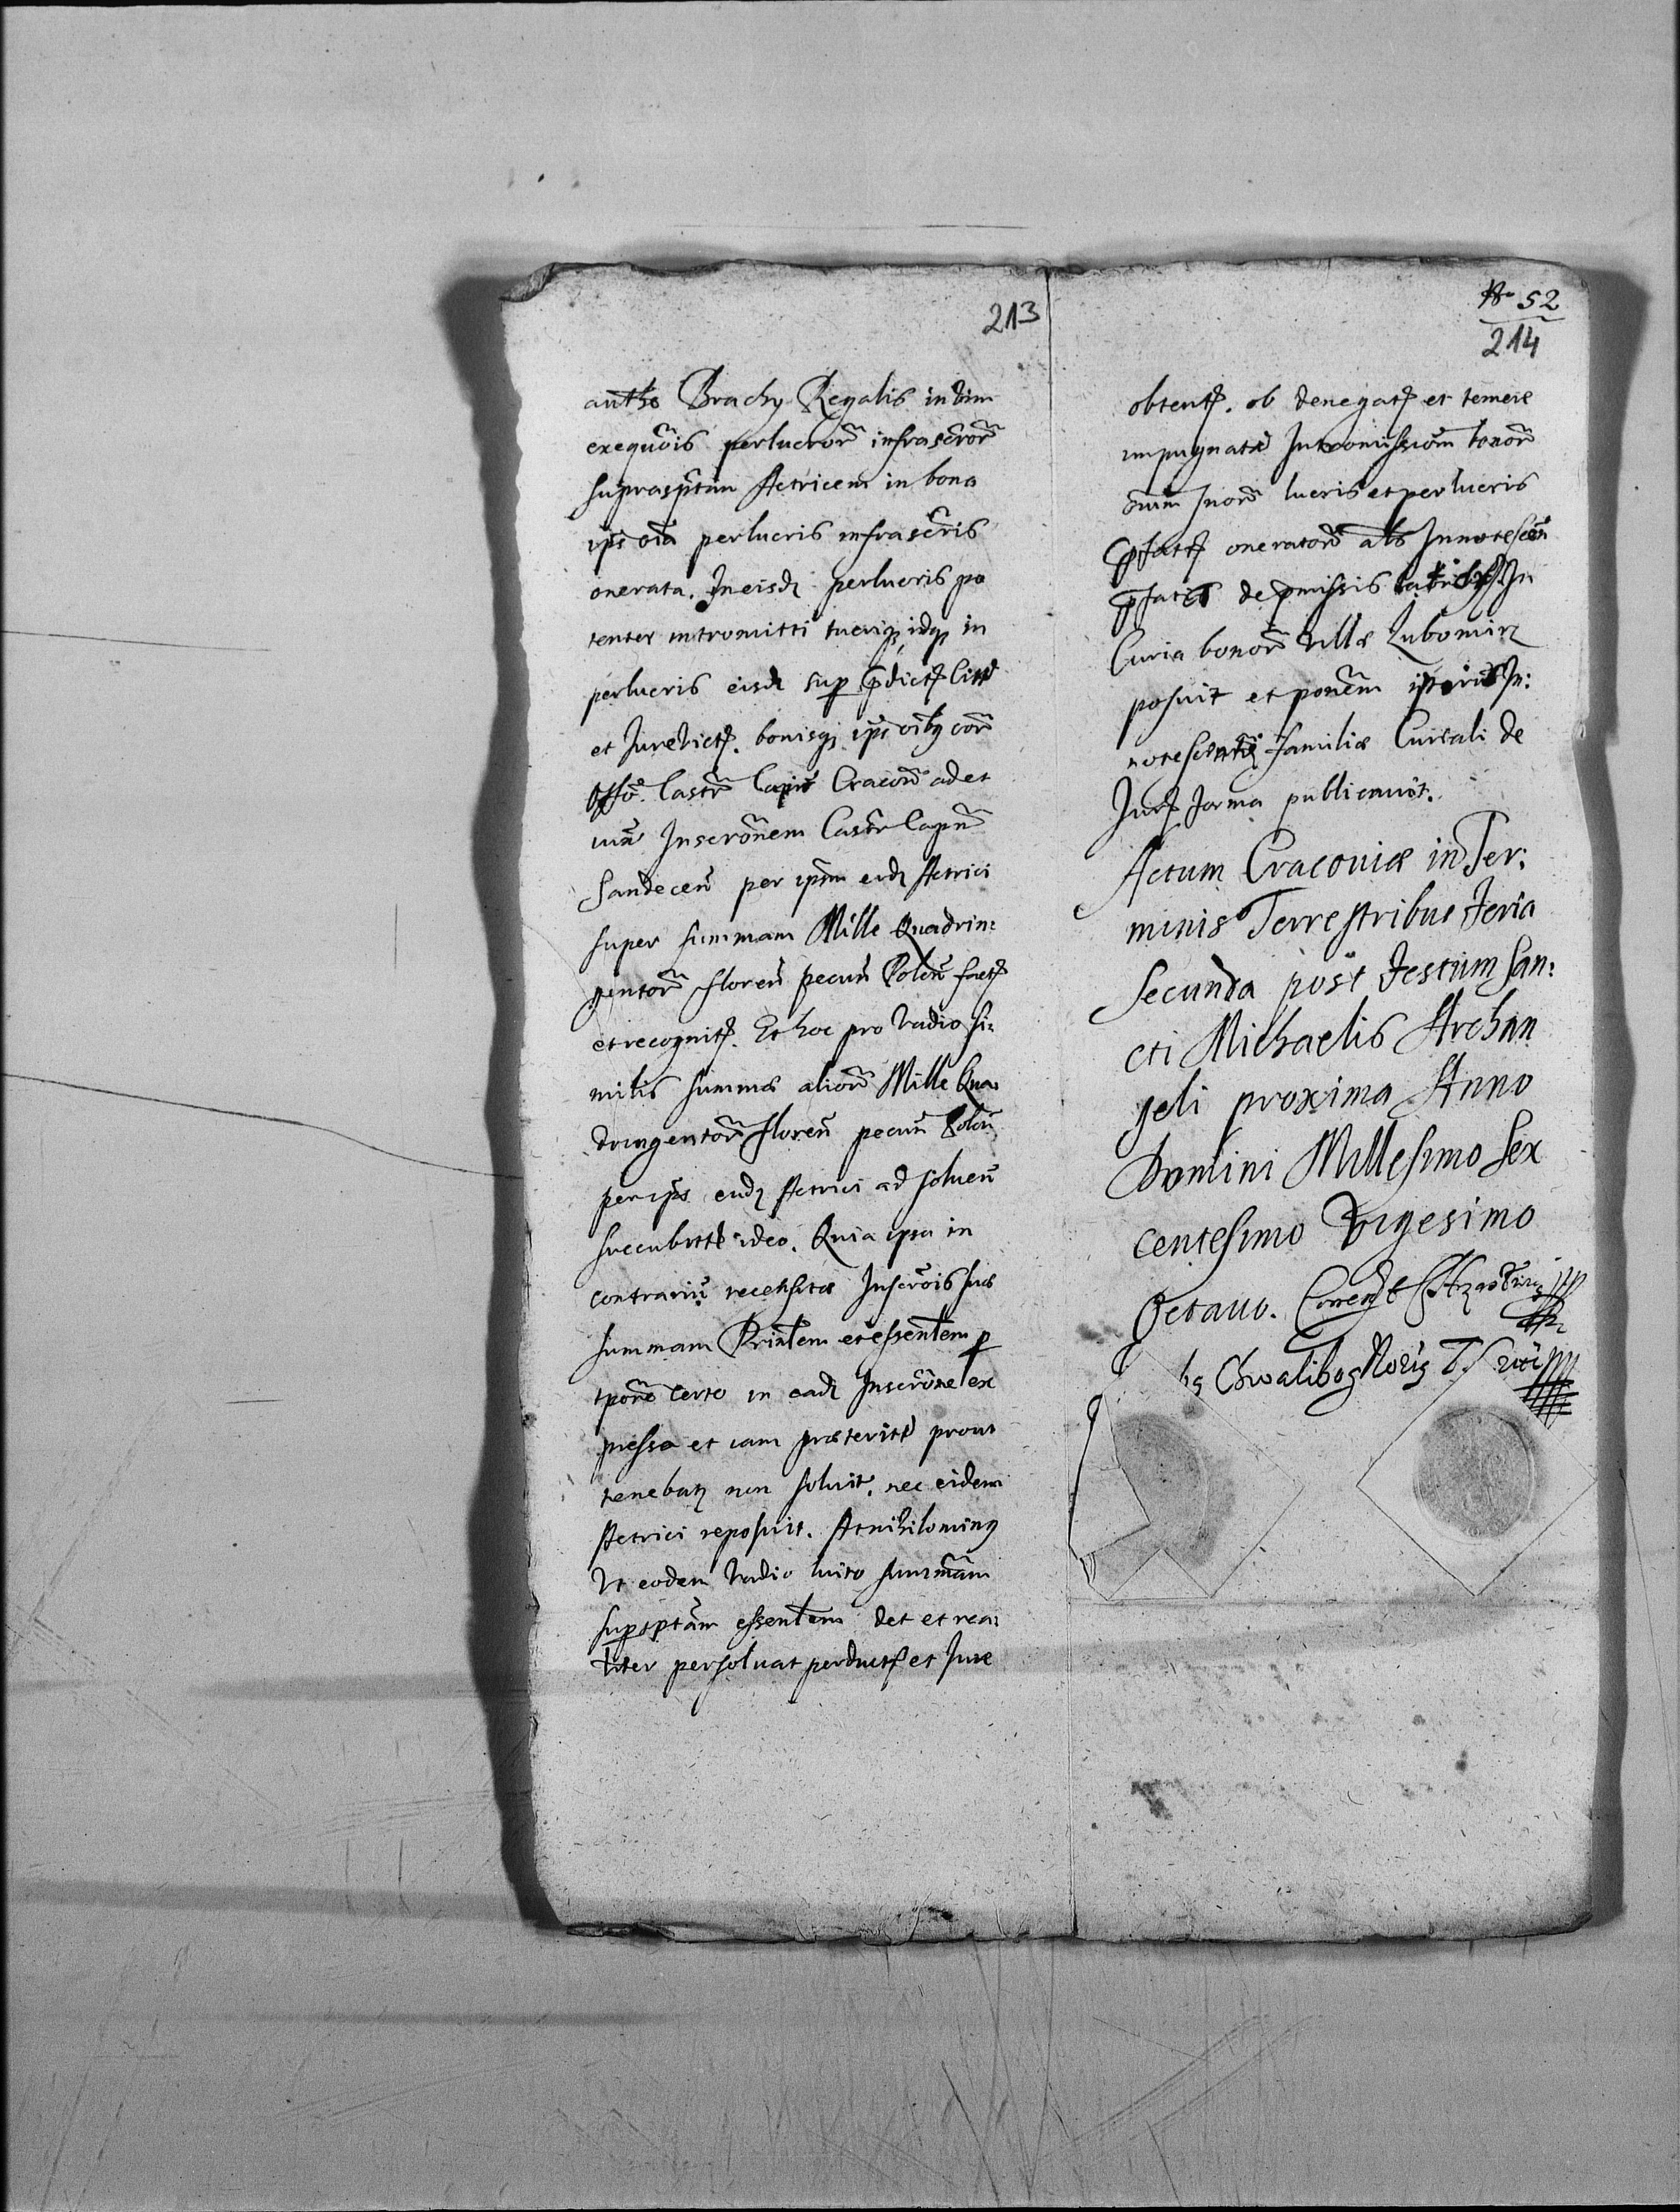 213
autho Brachy Regalis in vim
exequōis perlucror̄ infrascr̄or̄
suprasp̄tam Actricem in bona
ip̄s oīa perlucris infrascr̄is
onerata. In eisdȝ perlucris po
tenter intromitti tueriqȝ idqȝ in
perlucris eisdȝ sup p̄dictȝ
et Jurevictȝ. bonisqȝ ip̄s oībȝ cor̄
Offō. Castr̄ Capit̄ Cracoū ad et
Inscrōnem Castr̄ Capn̄
Sandeceū per ip̄m eidȝ Actrici
super summam Mille Quadrin:
gentor̄ floreū pecuū Poloū factȝ
et recognitȝ. Et hoc pro Vadio si:
milis summæ alior̄ Mille Qua:
dringentor̄ floreū pecuū Poloū
per ip̄s eidȝ Actrici ad solueū
succubitt ideo. Quia ipsa in
contrariū recensitæ Inscrōis suæ
summam Prin̄lem et essen̄lem p
tpore certo in eadȝ Inscrōne ex
pressa et iam præterit prout
tenebatȝ non soluit. nec eidem
Actrici reposuit. At nihilominȝ
Ut eodem Vadio luito summām
supsp̄tām essen̄lem det et rea:
liter persoluat perductȝ et Jure
No 52
214
obtentȝ. ob denegatȝ et temere
impugnatā Intromissiom̄ bonor̄
oīum suor̄ lucris et perlucris
p̄fatȝ oneratorū als Innotesceū
p̄fatas de p̄missis In
Curia bonor̄ Villæ Lubomirz
posuit et ponēm In:
notesceū familiæ Curiali de
Jurȝ forma publicauit.
Actum Cracouiæ in Ter:
minis Terrestribus Feria
Secunda post Festum San:
cti Michaelis Archan
geli proxima Anno
Domini Millesimo Sex
centesimo Vigesimo
Octauo.
Chwalibog